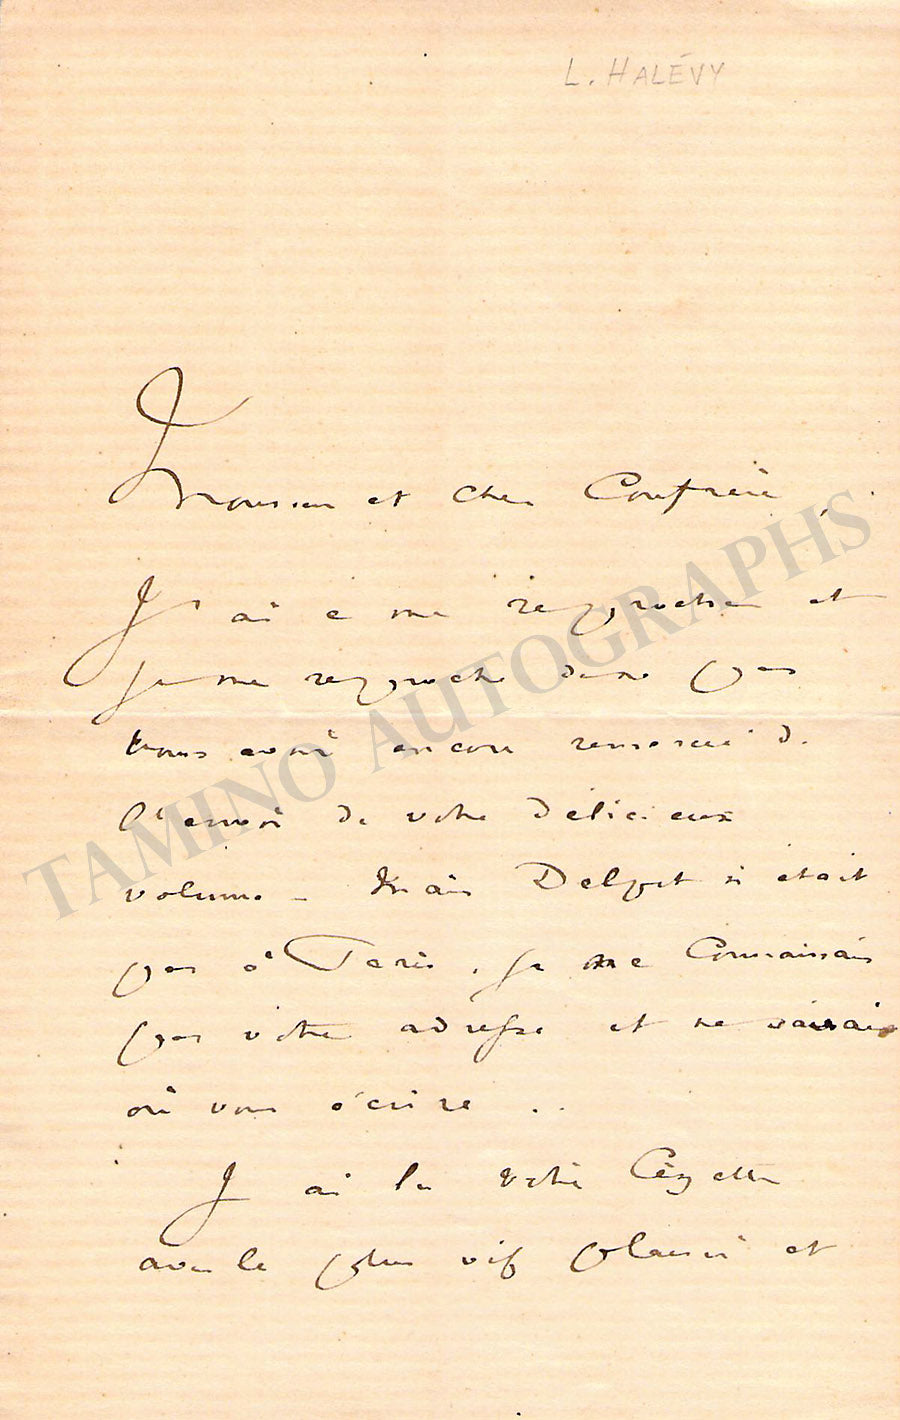 L. HALÉVY
Monsieur et cher Confrère
J'ai à me reprocher et
je me reproche de ne pas
vous avoir encore remercié de
l'envoi de votre délicieux
volume - Mais Delpit n'était
pas à Paris, je ne connaissais
pas votre adresse et ne savais
où vous écrire ..
J'ai lu votre Cézette
avec le plus vif plaisir et
TAMINO AUTOGRAPHS